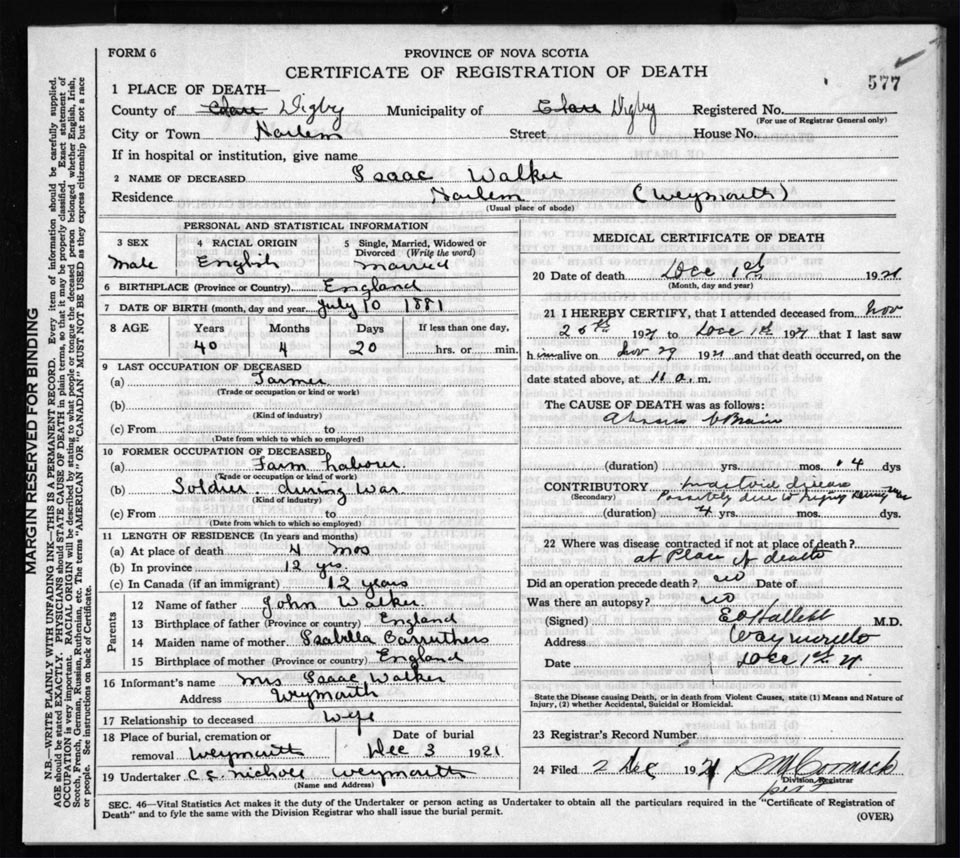 FORM 6
PROVINCE OF NOVA SCOTIA
CERTIFICATE OF REGISTRATION OF DEATH
577
1 PLACE OF DEATH—
County of Clare Digby Municipality of Clare Digby Registered No.
(For use of Registrar General only)
City or Town Harlem Street House No.
If in hospital or institution, give name
2 NAME OF DECEASED Isaac Walker
Residence Harlem (Weymouth)
(Usual place of abode)
PERSONAL AND STATISTICAL INFORMATION
3 SEX
Male
4 RACIAL ORIGIN
English
5 Single, Married, Widowed or Divorced (Write the word)
Married
6 BIRTHPLACE (Province or Country) England
7 DATE OF BIRTH (month, day and year) July 10 1881
8 AGE Years Months Days If less than one day,
40 4 20 hrs. or min.
9 LAST OCCUPATION OF DECEASED
(a) Farmer
(Trade or occupation or kind of work)
(b)
(Kind of industry)
(c) From to
(Date from which to which so employed)
10 FORMER OCCUPATION OF DECEASED
(a) Farm Laborer
(Trade or occupation or kind of work)
(b) Soldier during War
(Kind of industry)
(c) From to
(Date from which to which so employed)
11 LENGTH OF RESIDENCE (In years and months)
(a) At place of death 4 mos
(b) In province 12 yrs.
(c) In Canada (if an immigrant) 12 years
Parents
12 Name of father John Walker
13 Birthplace of father (Province or country) England
14 Maiden name of mother Isabella Carruthers
15 Birthplace of mother (Province or country) England
16 Informant's name Mrs Isaac Walker
Address Weymouth
17 Relationship to deceased Wife
18 Place of burial, cremation or removal Weymouth
Date of burial
Dec 3 1921
19 Undertaker C.E. Nichols Weymouth
(Name and Address)
MEDICAL CERTIFICATE OF DEATH
20 Date of death Dec 1st 1921
(Month, day and year)
21 I HEREBY CERTIFY, that I attended deceased from Nov
26th 1921 to Dec 1st 1921 that I last saw
h im alive on Nov 29 1921 and that death occurred, on the
date stated above, at 11 a. m.
The CAUSE OF DEATH was as follows:
Abscess Brain
(duration) yrs. mos. 4 dys
CONTRIBUTORY Mastoid disease
(Secondary) Possibly due to injury during war
(duration) 4 yrs. mos. dys.
22 Where was disease contracted if not at place of death?
at Place of death
Did an operation precede death? no Date of
Was there an autopsy? no
(Signed) E O Hallett M.D.
Address Weymouth
Date Dec 1st 21
State the Disease causing Death, or in death from Violent Causes, state (1) Means and Nature of
Injury, (2) whether Accidental, Suicidal or Homicidal.
23 Registrar's Record Number
24 Filed 2 Dec 1921
Division Registrar
SEC. 46—Vital Statistics Act makes it the duty of the Undertaker or person acting as Undertaker to obtain all the particulars required in the "Certificate of Registration of
Death" and to fyle the same with the Division Registrar who shall issue the burial permit.
(OVER)
MARGIN RESERVED FOR BINDING
N.B.—WRITE PLAINLY WITH UNFADING INK—THIS IS A PERMANENT RECORD. Every item of information should be carefully supplied.
AGE should be stated EXACTLY. PHYSICIANS should STATE CAUSE OF DEATH in plain terms, so that it may be properly classified. Exact statement of
OCCUPATION is very important. RACIAL ORIGIN will be described by stating to what people or tongue the deceased person belonged whether English, Irish,
Scotch, French, German, Russian, Ruthenian, etc. The terms "AMERICAN" OR "CANADIAN" MUST NOT BE USED as they express citizenship but not a race
or people. See instructions on back of Certificate.